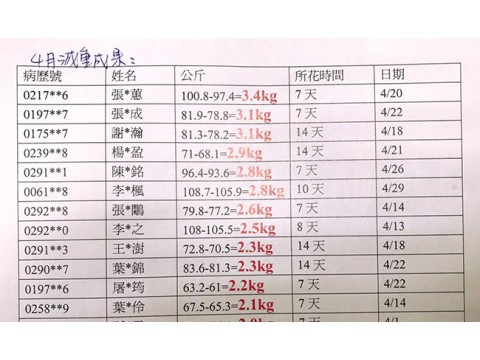 4月減重成果：
病歷號 姓名 公斤 所花時間 日期
0217**6 張*蕙 100.8-97.4=3.4kg 7 天 4/20
0197**7 張*成 81.9-78.8=3.1kg 7 天 4/22
0175**7 謝*瀚 81.3-78.2=3.1kg 14 天 4/18
0239**8 楊*盈 71-68.1=2.9kg 14 天 4/21
0291**1 陳*銘 96.4-93.6=2.8kg 7 天 4/26
0061**8 李*楓 108.7-105.9=2.8kg 10 天 4/29
0292**8 張*鸘 79.8-77.2=2.6kg 7 天 4/14
0292**0 李*之 108-105.5=2.5kg 8 天 4/13
0291**3 王*澍 72.8-70.5=2.3kg 14 天 4/18
0290**7 葉*錦 83.6-81.3=2.3kg 14 天 4/22
0197**6 屠*筠 63.2-61=2.2kg 7 天 4/22
0258**9 葉*伶 67.5-65.3=2.1kg 7 天 4/14